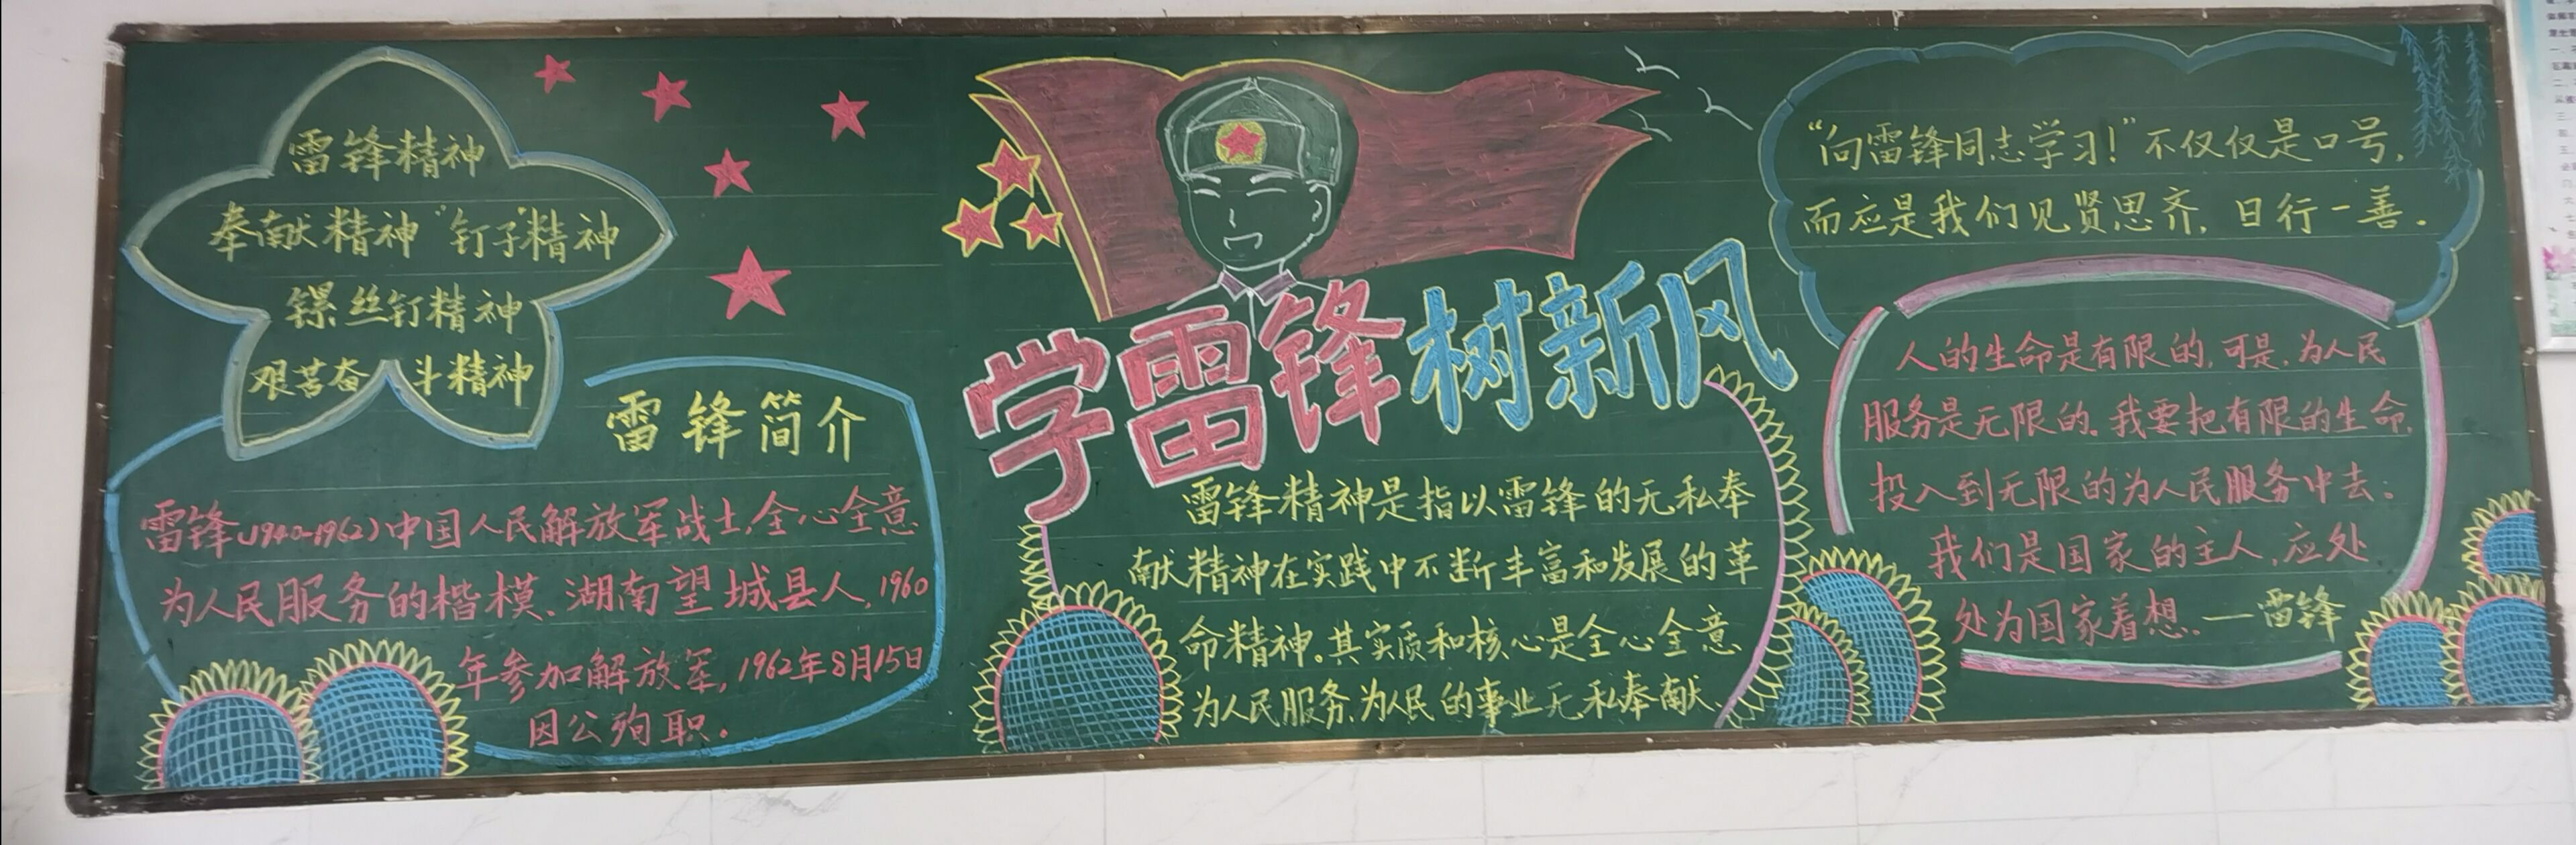 雷锋精神
奉献精神"钉子"精神
镙丝钉精神
艰苦奋斗精神
雷锋简介
雷锋(1940-1962)中国人民解放军战士,全心全意
为人民服务的楷模、湖南望城县人,1960
年参加解放军,1962年8月15日
因公殉职。
学雷锋树新风
雷锋精神是指以雷锋的无私奉
献精神在实践中不断丰富和发展的革
命精神。其实质和核心是全心全意
为人民服务,为人民的事业无私奉献、
"向雷锋同志学习!"不仅仅是口号,
而应是我们见贤思齐,日行一善.
人的生命是有限的,可是,为人民
服务是无限的。我要把有限的生命,
投入到无限的为人民服务中去;
我们是国家的主人,应处
处为国家着想、—雷锋